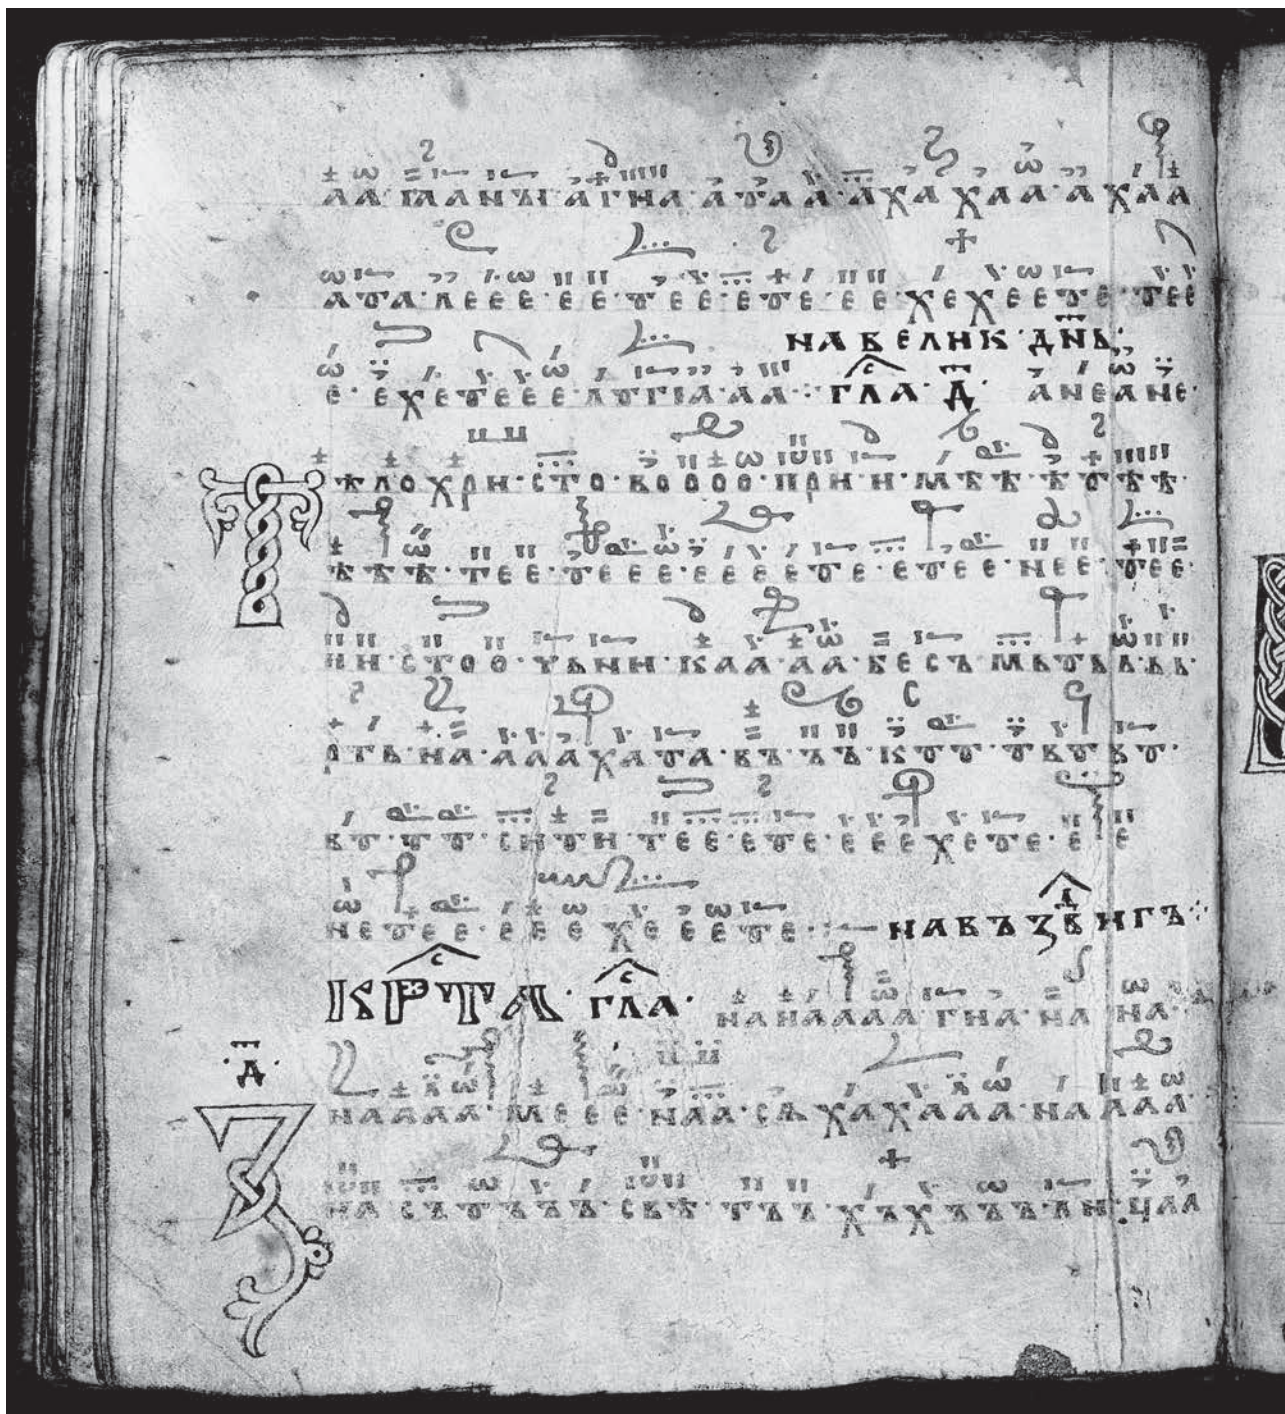 аа·гаанъі·агиа·атаа·ахахаа·ахаа
ата·леее·ее·тее·ете·ее·хехеете·тее
на велик дн҃ь
е·ехетеее·лугіа·аа· гл҃а·д҃· анеане·
Тѣло·хри·сто·вооо·при·и·мѣѣ·ѣтѣѣ·
ѣѣѣ·тее·теее·еееете·етее·нее·тее·
ни·стоо·чьни·каа·аа·бесъмьтььь·
рть·на·алахата·въъъ·коу
сити·тее·ете·еееехете·е е
нетее·еее·хеееете· на въздвигъ·
крⷭ҇та· глⷭ҇а· нанаааа·гиа·на·на·
·д҃·
Знаааа·меее·наа·сѧхахааа·нааа
на·съ